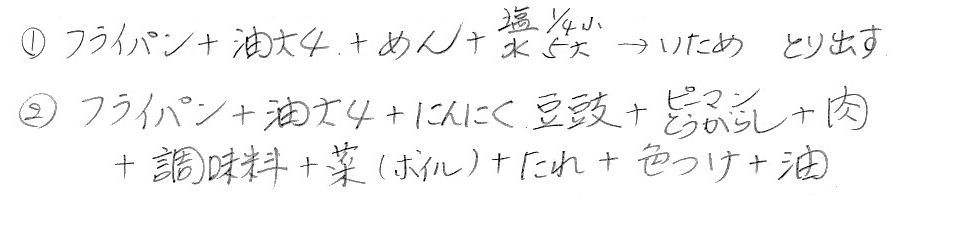 ① フライパン+油大4.+めん+塩1/4小 水5大→いため とり出す
② フライパン+油大4+にんにく 豆豉+ピーマン とうがらし+肉
+調味料+菜(ボイル)+たれ+色つけ+油